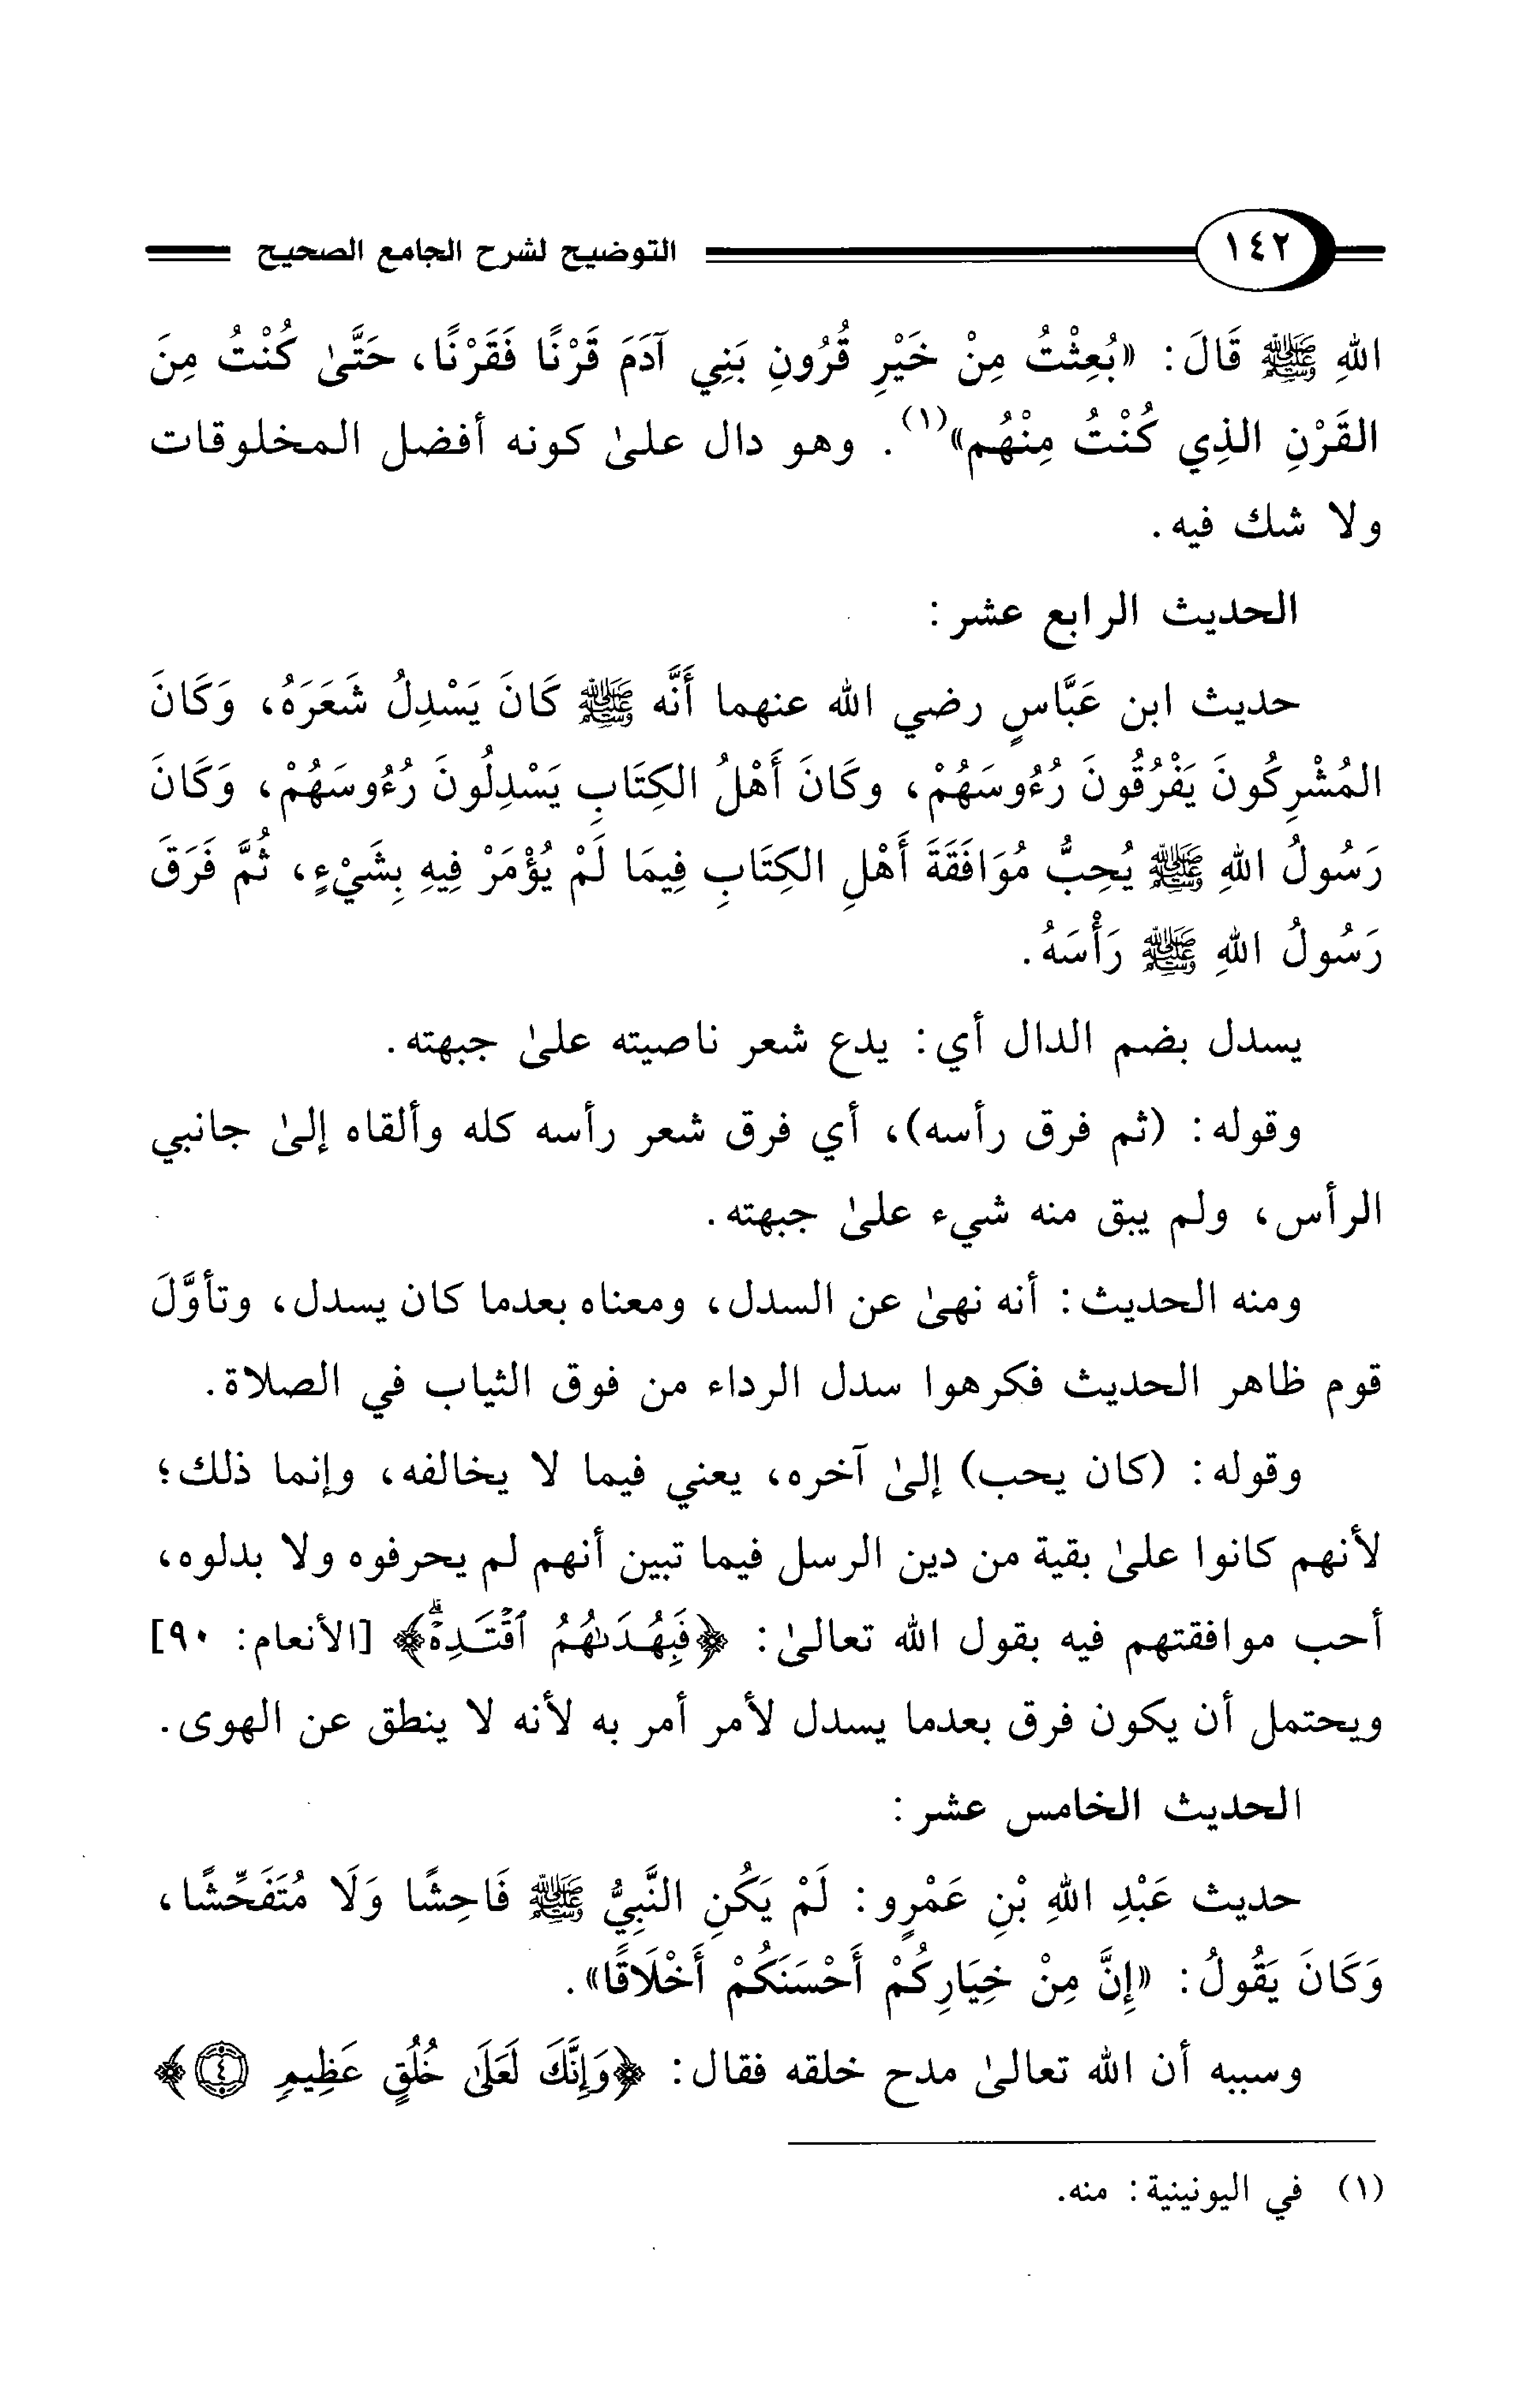 ١٤٢ التوضيح لشرح الجامع الصحيح
اللهِ ﷺ قَالَ: «بُعِثْتُ مِنْ خَيْرِ قُرُونِ بَنِي آدَمَ قَرْنًا فَقَرْنًا، حَتَّىٰ كُنْتُ مِنَ
القَرْنِ الذِي كُنْتُ مِنْهُم»(١). وهو دال علىٰ كونه أفضل المخلوقات
ولا شك فيه.
الحديث الرابع عشر:
حديث ابن عَبَّاسٍ رضي الله عنهما أَنَّه ﷺ كَانَ يَسْدِلُ شَعَرَهُ، وَكَانَ
المُشْرِكُونَ يَفْرُقُونَ رُءُوسَهُمْ، وكَانَ أَهْلُ الكِتَابِ يَسْدِلُونَ رُءُوسَهُمْ، وَكَانَ
رَسُولُ اللهِ ﷺ يُحِبُّ مُوَافَقَةَ أَهْلِ الكِتَابِ فِيمَا لَمْ يُؤْمَرْ فِيهِ بِشَيْءٍ، ثُمَّ فَرَقَ
رَسُولُ اللهِ ﷺ رَأْسَهُ.
يسدل بضم الدال أي: يدع شعر ناصيته علىٰ جبهته.
وقوله: (ثم فرق رأسه)، أي فرق شعر رأسه كله وألقاه إلىٰ جانبي
الرأس، ولم يبق منه شيء علىٰ جبهته.
ومنه الحديث: أنه نهىٰ عن السدل، ومعناه بعدما كان يسدل، وتأوَّلَ
قوم ظاهر الحديث فكرهوا سدل الرداء من فوق الثياب في الصلاة.
وقوله: (كان يحب) إلىٰ آخره، يعني فيما لا يخالفه، وإنما ذلك؛
لأنهم كانوا علىٰ بقية من دين الرسل فيما تبين أنهم لم يحرفوه ولا بدلوه،
أحب موافقتهم فيه بقول الله تعالىٰ: ﴿فَبِهُدَىٰهُمُ ٱقْتَدِهْۗ﴾ [الأنعام: ٩٠]
ويحتمل أن يكون فرق بعدما يسدل لأمر أمر به لأنه لا ينطق عن الهوى.
الحديث الخامس عشر:
حديث عَبْدِ اللهِ بْنِ عَمْرٍو: لَمْ يَكُنِ النَّبِيُّ ﷺ فَاحِشًا وَلَا مُتَفَحِّشًا،
وَكَانَ يَقُولُ: «إِنَّ مِنْ خِيَارِكُمْ أَحْسَنَكُمْ أَخْلَاقًا».
وسببه أن الله تعالىٰ مدح خلقه فقال: ﴿وَإِنَّكَ لَعَلَىٰ خُلُقٍ عَظِيمٍ ٤﴾
(١) في اليونينية: منه.